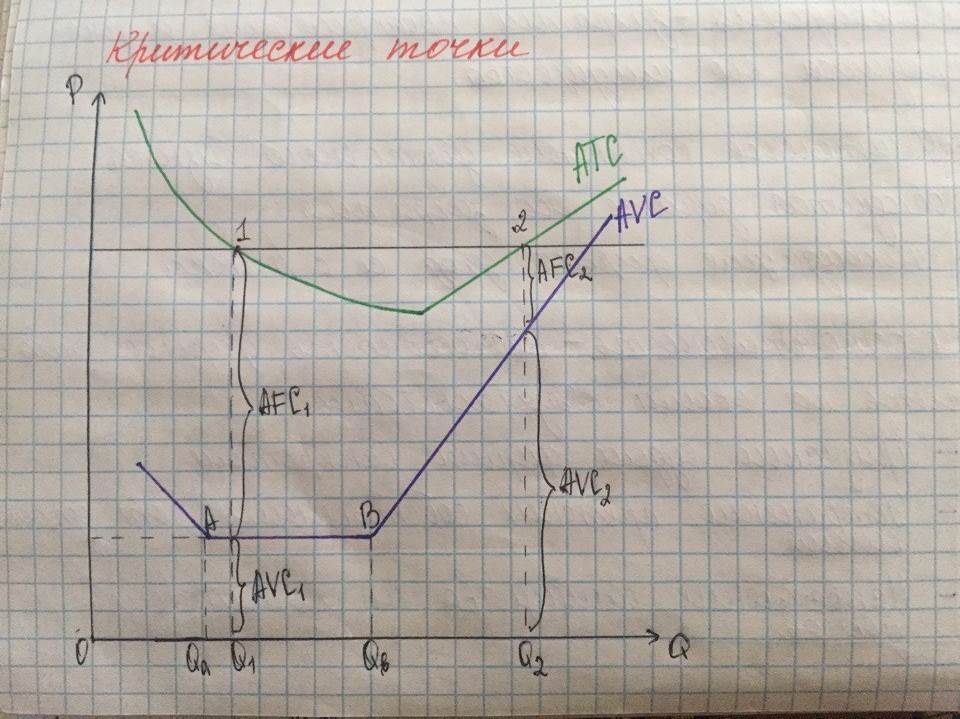 Критические точки
P
ATC
AVC
1
2
AFC₂
AFC₁
AVC₂
A
B
AVC₁
0
Qₐ
Q₁
Qв
Q₂
Q